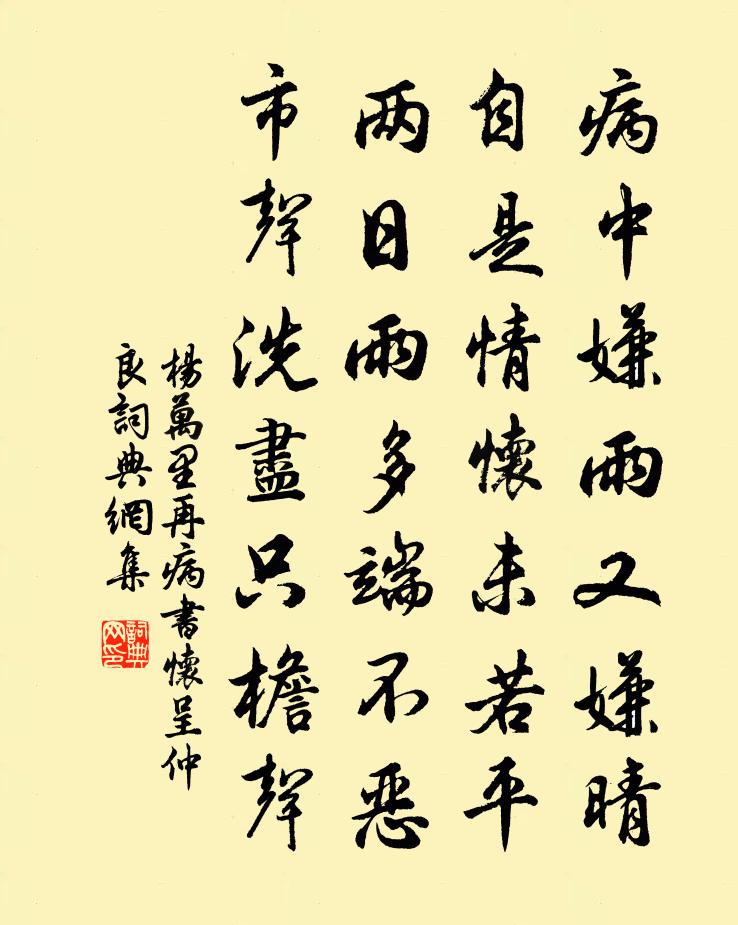 病中嫌雨又嫌晴
自是情懷未若平
两日雨多端不恶
市聲洗盡只檐聲
楊萬里再病書懷呈仲
良詞典網集
詞典
网印